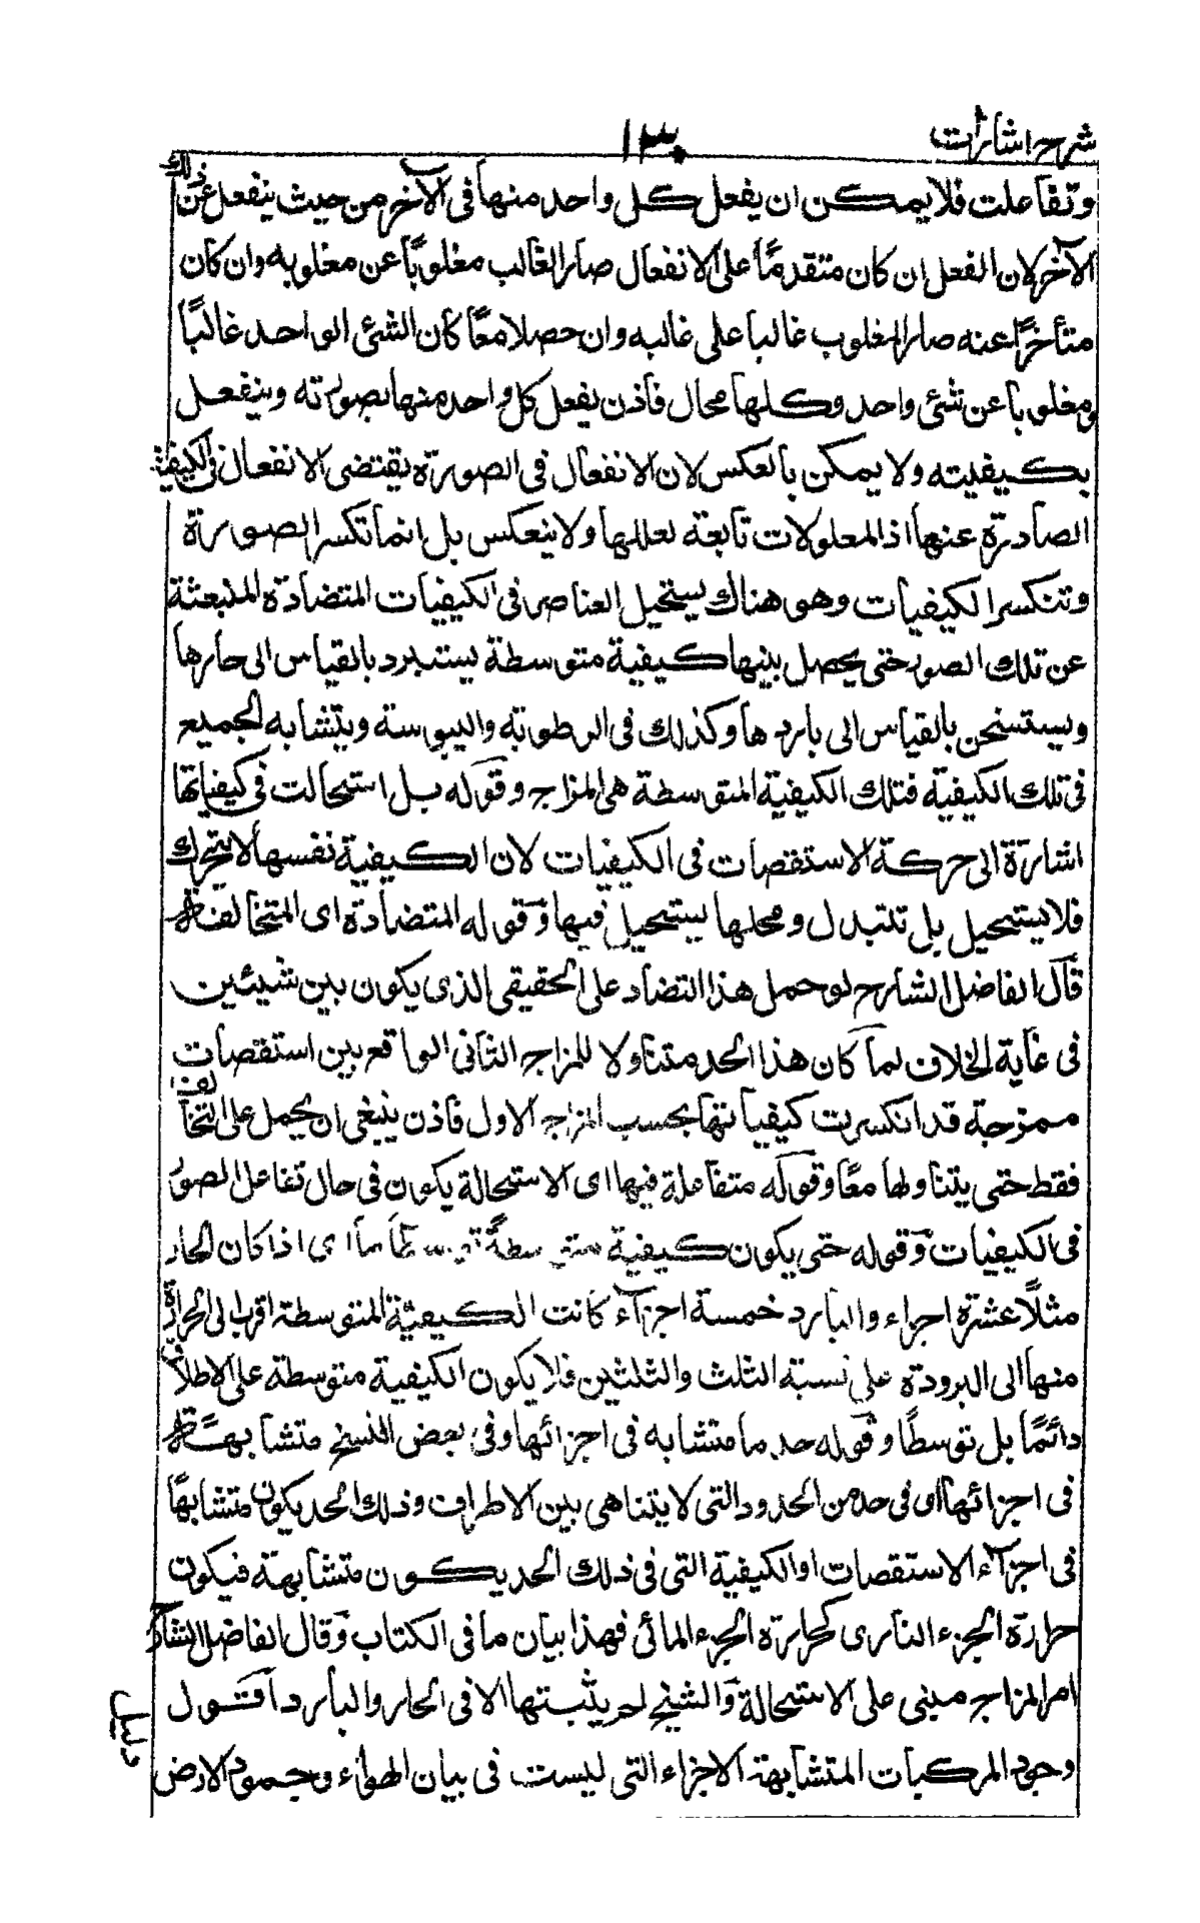 شرح اشارات
١٣٠
وتفاعلت فلا يمكن ان يفعل كل واحد منها فى الآخر من حيث ينفعل عن ذلك
الآخر لان الفعل ان كان متقدمًا على الانفعال صار الغالب مغلوبًا عن مغلوبه وان كان
متأخرًا عنه صار المغلوب غالبا على غالبه وان حصلا معًا كان الشئ الواحد غالبًا
ومغلوبا عن شئ واحد وكلها محال فاذن يفعل كل واحد منها بصورته وينفعل
بكيفيته ولا يمكن بالعكس لان الانفعال فى الصورة يقتضى الانفعال فى الكيفية
الصادرة عنها اذ المعلولات تابعة لعللها ولا ينعكس بل انما تكسر الصورة
وتنكسر الكيفيات وهو هناك يستحيل العناصر فى الكيفيات المتضادة المنبعثة
عن تلك الصور حتى يحصل بينها كيفية متوسطة يستبرد بالقياس الى حارها
ويستسخن بالقياس الى باردها وكذلك فى الرطوبة واليبوسة ويتشابه الجميع
فى تلك الكيفية فتلك الكيفية المتوسطة هى المزاج وقوله بل استحالت فى كيفياتها
اشارة الى حركة الاستقصات فى الكيفيات لان الكيفية نفسها لا يتحرك
فلا يستحيل بل تتبدل ومحلها يستحيل فيها وقوله المتضادة اى المتخالفة
قال الفاضل الشارح لو حمل هذا التضاد على الحقيقى الذى يكون بين شيئين
فى غاية الخلاف لما كان هذا الحد متناولا للمزاج الثانى الواقع بين استقصات
ممزجة قد انكسرت كيفياتها بحسب المزاج الاول فاذن ينبغى ان يحمل على التخالف
فقط حتى يتناولها معًا وقوله متفاعلة فيها اى الاستحالة يكون فى حال تفاعل الصور
فى الكيفيات وقوله حتى يكون كيفية متوسطة توسطًا ما اى اذا كان الحار
مثلًا عشرة اجزاء والبارد خمسة اجزاء كانت الكيفية المتوسطة اقرب الى الحرارة
منها الى البرودة على نسبة الثلث والثلثين فلا يكون الكيفية متوسطة على الاطلاق
دائمًا بل توسطًا وقوله حد ما متشابه فى اجزائها وفى بعض النسخ متشابهة
فى اجزائها اى فى حد من الحدود التى لا يتناهى بين الاطراف وذلك الحد يكون متشابهًا
فى اجزاء الاستقصات او الكيفية التى فى ذلك الحد يكون متشابهة فيكون
حرارة الجزء النارى كحرارة الجزء المائى فهذا بيان ما فى الكتاب وقال الفاضل الشارح
امر المزاج مبنى على الاستحالة والشيخ لم يثبتها الا فى الحار والبارد اقول
وجود المركبات المتشابهة الاجزاء التى ليست فى بيان الهواء وجمود الارض
دليل